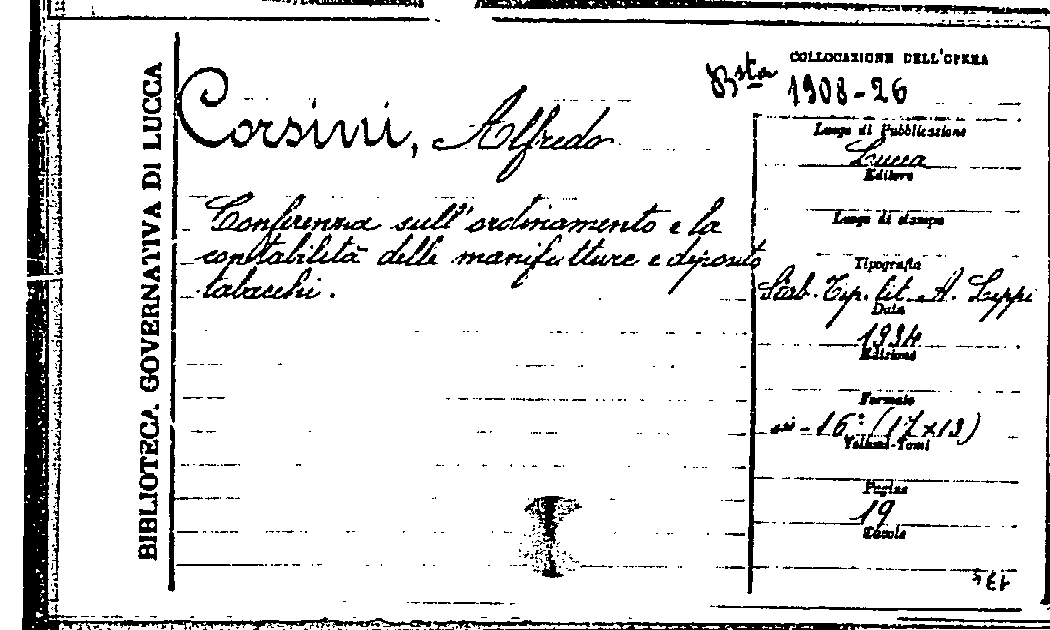 BIBLIOTECA GOVERNATIVA DI LUCCA
Corsini, Alfredo
Conferenza sull'ordinamento e la
contabilità delle manifatture e deposito
tabacchi.
COLLOCAZIONE DELL'OPERA
Bsta 1908-26
Luogo di Pubblicazione
Lucca
Editore
Luogo di stampa
Tipografia
Stab. Tip. lit. A. Lippi
Data
1934
Edizione
Formato
in-16° (17x13)
Volumi-Tomi
Pagine
19
Tavole